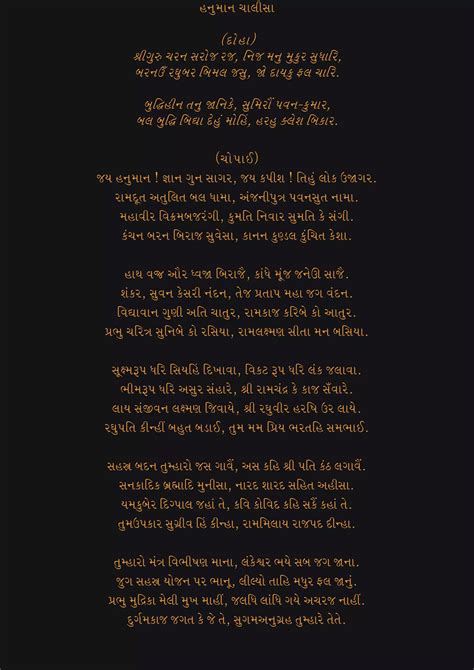 હનુમાન ચાલીસા
(દોહા)
શ્રીગુરુ ચરન સરોજ રજ, નિજ મનુ મુકુર સુધારિ,
બરનઉઁ રઘુબર બિમલ જસુ, જો દાયકુ ફલ ચારિ.
બુદ્ધિહીન તનુ જાનિકે, સુમિરૌં પવન-કુમાર,
બલ બુદ્ધિ બિદ્યા દેહું મોહિં, હરહુ ક્લેશ બિકાર.
(ચોપાઈ)
જય હનુમાન ! જ્ઞાન ગુન સાગર, જય કપીશ ! તિહું લોક ઉજાગર.
રામદૂત અતુલિત બલ ધામા, અંજનીપુત્ર પવનસુત નામા.
મહાવીર વિક્રમબજરંગી, કુમતિ નિવાર સુમતિ કે સંગી.
કંચન બરન બિરાજ સુવેસા, કાનન કુણ્ડલ કુંચિત કેશા.
હાથ વજ્ર ઔર ધ્વજા બિરાજૈ, કાંધે મૂંજ જનેઊ સાજૈ.
શંકર, સુવન કેસરી નંદન, તેજ પ્રતાપ મહા જગ વંદન.
વિદ્યાવાન ગુણી અતિ ચાતુર, રામકાજ કરિબે કો આતુર.
પ્રભુ ચરિત્ર સુનિબે કો રસિયા, રામલક્ષ્મણ સીતા મન બસિયા.
સૂક્ષ્મરૂપ ધરિ સિયહિં દિખાવા, વિકટ રૂપ ધરિ લંક જલાવા.
ભીમરૂપ ધરિ અસુર સંહારે, શ્રી રામચંદ્ર કે કાજ સઁવારે.
લાય સંજીવન લક્ષ્મણ જિવાયે, શ્રી રઘુવીર હરષિ ઉર લાયે.
રઘુપતિ કીન્હીં બહુત બડાઈ, તુમ મમ પ્રિય ભરતહિ સમભાઈ.
સહસ્ર બદન તુમ્હારો જસ ગાવૈં, અસ કહિ શ્રી પતિ કંઠ લગાવૈં.
સનકાદિક બ્રહ્માદિ મુનીસા, નારદ શારદ સહિત અહીસા.
યમકુબેર દિગ્પાલ જહાં તે, કવિ કોવિદ કહિ સકૈં કહાં તે.
તુમઉપકાર સુગ્રીવ હિં કીન્હા, રામમિલાય રાજપદ દીન્હા.
તુમ્હારો મંત્ર વિભીષણ માના, લંકેશ્વર ભયે સબ જગ જાના.
જુગ સહસ્ર યોજન પર ભાનૂ, લીલ્યો તાહિ મધુર ફલ જાનું.
પ્રભુ મુદ્રિકા મેલી મુખ માહીં, જલધિ લાંધિ ગયે અચરજ નાહીં.
દુર્ગમકાજ જગત કે જે તે, સુગમઅનુગ્રહ તુમ્હારે તેતે.